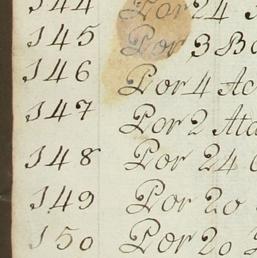 144 Por 24
145 Por 3 Ba
146 Por 4 Ac
147 Por 2 Ata
148 Por 24
149 Por 20
150 Por 20